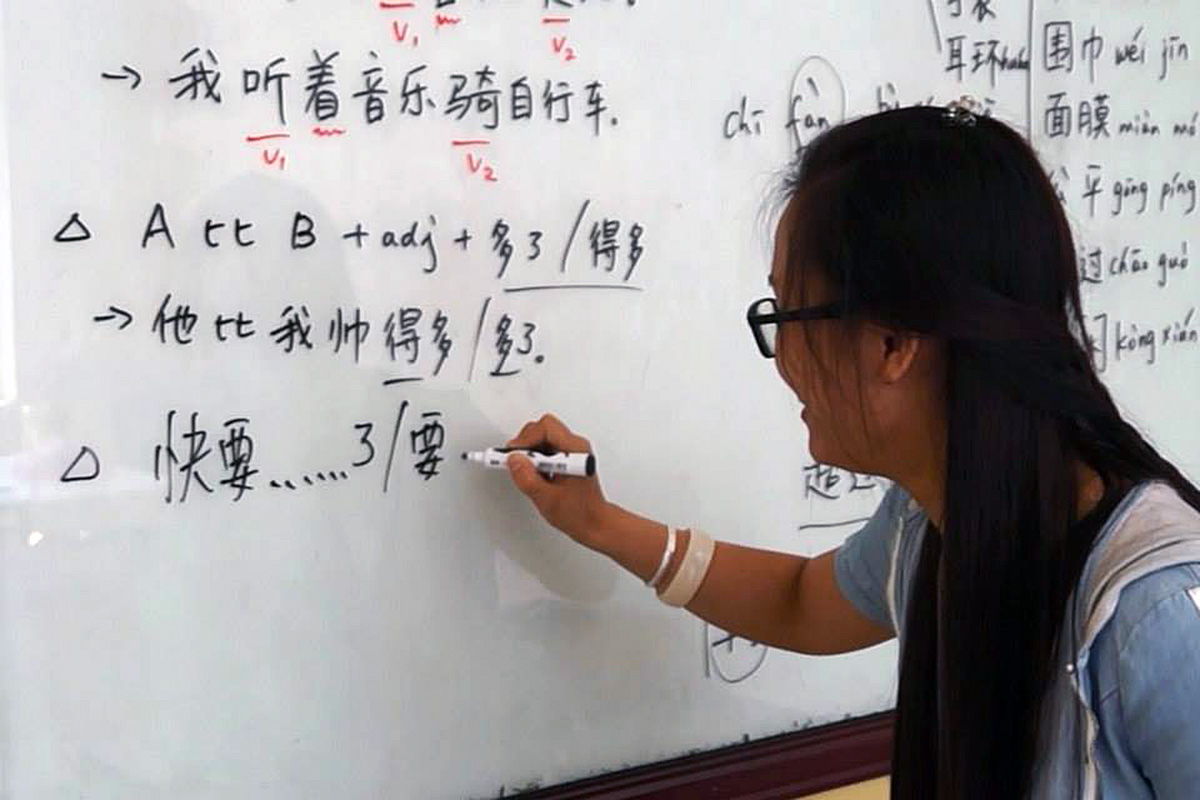 V1 V2
→ 我听着音乐骑自行车.
V1 V2
△ A 比 B + adj + 多了/得多
→ 他比我帅得多/多了。
△ 快要......了/要
chī fàn
耳环
围巾 wéi jīn
面膜 miàn mó
平 gōng píng
过 chāo guò
kòng xián